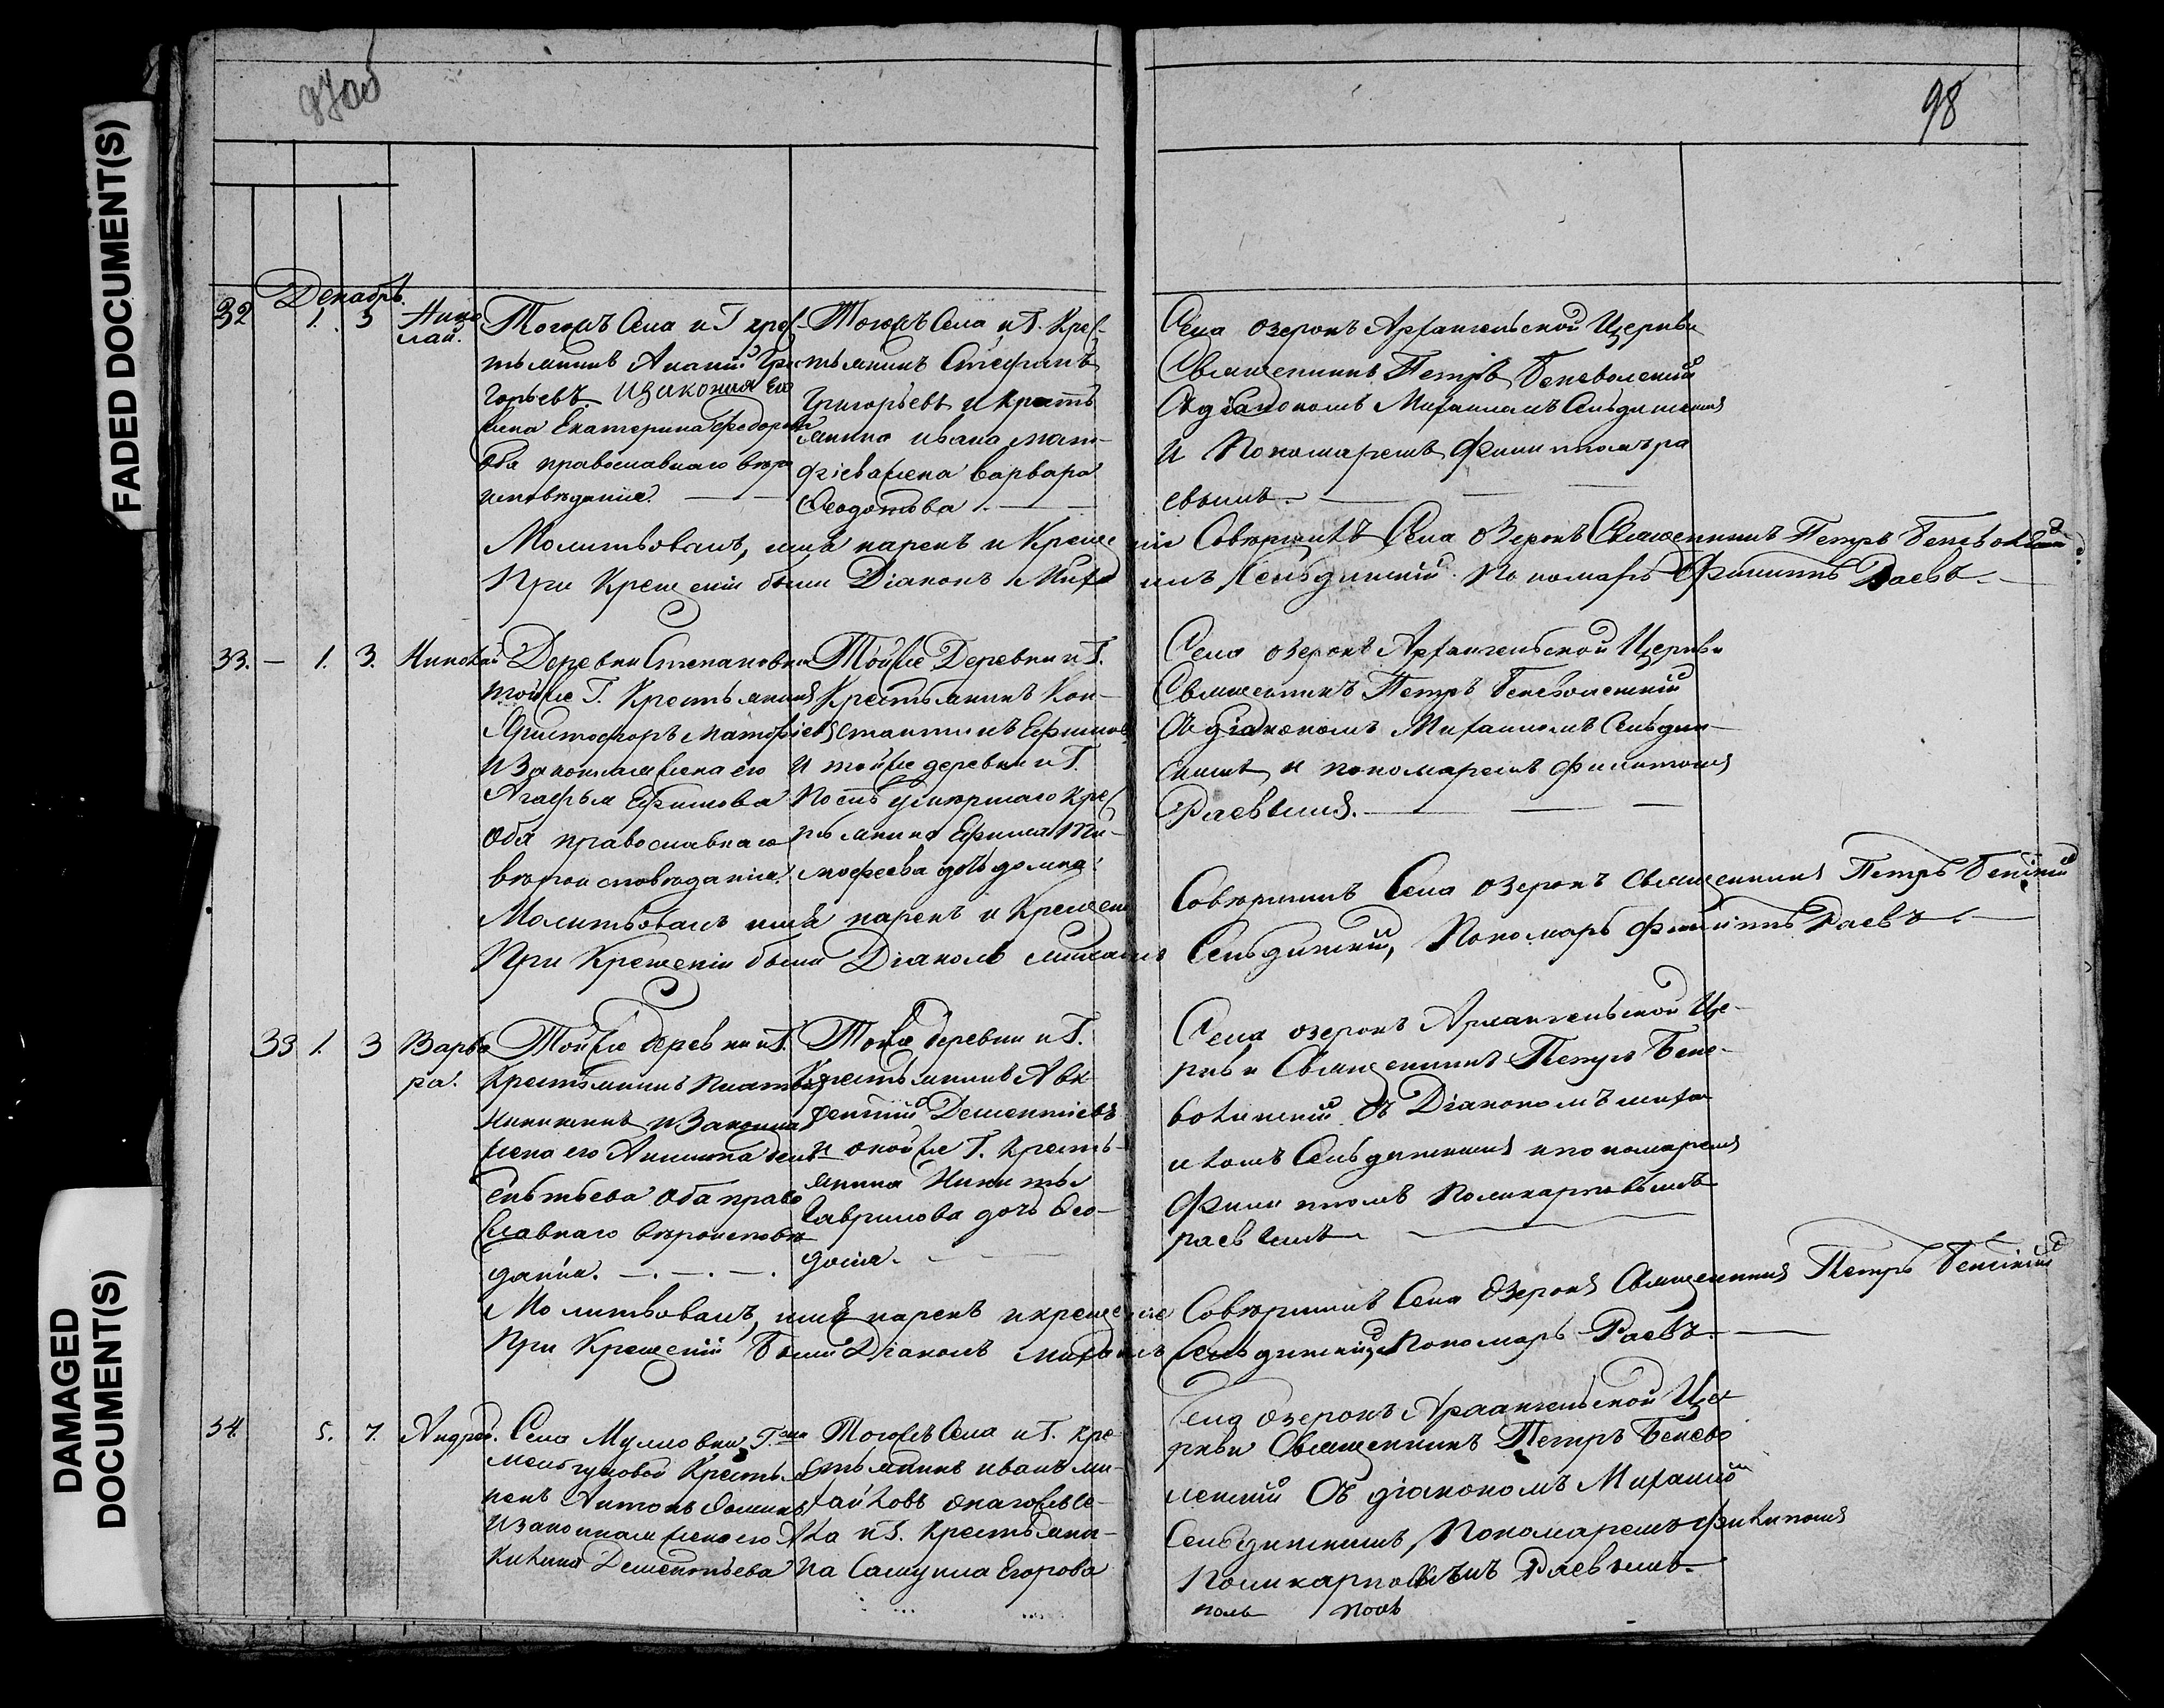 FADED DOCUMENT(S)
DAMAGED
DOCUMENT(S)
97об
98
Декабрь.
32
1. 3
Нико
лай.
Тогожъ Села и Г. крес
тьянинъ Ананiй Гри
горьевъ и законная его
жена Екатерина Федорова
оба православнаго вѣро
исповѣданiя.
Тогожъ Села и Г. Крес-
тьянинъ Стефанъ
Григорьевъ и кресть
янина Ивана Мат-
фiева жена Варвара
Ѳеодотова.
Села Озерокъ Архангельской Церкви
Священникъ Петръ Беневоленскiй
Съ дiакономъ Михаиломъ Сельдинскимъ
и Пономаремъ Филиппомъ Ра
евымъ.
Молитвовалъ, имя нарекъ и Крещенiе Совершилъ Села Озерокъ Священникъ Петръ Беневоленскiй
При Крещенiи были Дiаконъ Михаилъ Сельдинскiй Пономарь Филиппъ Раевъ.
33. — 1. 3. Николай
Деревни Степановки
тойже Г. Крестьянинъ
Христофоръ Матфiевъ
и законная жена его
Агафья Ефимова
оба православнаго
вѣроисповѣданiя.
Тойже Деревни и Г.
Крестьянинъ Кон-
стантинъ Ефимовъ
и тойже деревни и Г.
После умершаго Крес
тьянина Ефима Ти-
мофеева дочь Домна.
Села Озерокъ Архангельской Церкви
Священникъ Петръ Беневоленскiй
Съ дiакономъ Михаиломъ Сельдин-
скимъ и пономаремъ Филиппомъ
Раевымъ.
Молитвовалъ имя нарекъ и Крещенiе Совершилъ Села Озерокъ Священникъ Петръ
При Крещенiи были Дiаконъ Михаилъ Сельдинскiй, Пономарь Филиппъ Раевъ.
33 1. 3
Варва
ра.
Тойже деревни и Г.
Крестьянинъ Платонъ
и законная
жена его
оба право
славнаго вѣроисповѣ
данiя.
Тойже деревни и Г.
Крестьянинъ Авк
сентiй Дементiевъ
и онойже Г. Кресть-
янина Никиты
Гаврилова дочь Ѳео-
досiя.
Села Озерокъ Архангельской Це-
ркви Священникъ Петръ Бене-
воленскiй Съ Дiакономъ Миха
иломъ Сельдинскимъ и пономаремъ
Филиппомъ Поликарповымъ
Раевымъ
Молитвовалъ, имя нарекъ и крещенiе Совершилъ Села Озерокъ Священникъ Петръ
При Крещенiи были Дiаконъ Михаилъ Сельдинскiй, Пономарь Раевъ.
34. 5. 7. Андрей.
Села Мулловки Г-жи
Мельгуновой Крестья
нинъ Антонъ
и законная жена его А
килина Дементьева
Тогожъ Села и Г. Кре-
стьянинъ Иванъ Ми-
хайловъ онагожъ Се-
ла и Г. Крестьяни-
на Самуила Егорова
Села Озерокъ Архангельской Це
ркви Священникъ Петръ Бенево
ленскiй Съ дiакономъ Михаило
Сельдинскимъ, Пономаремъ Филиппомъ
Поликарповымъ Раевымъ.